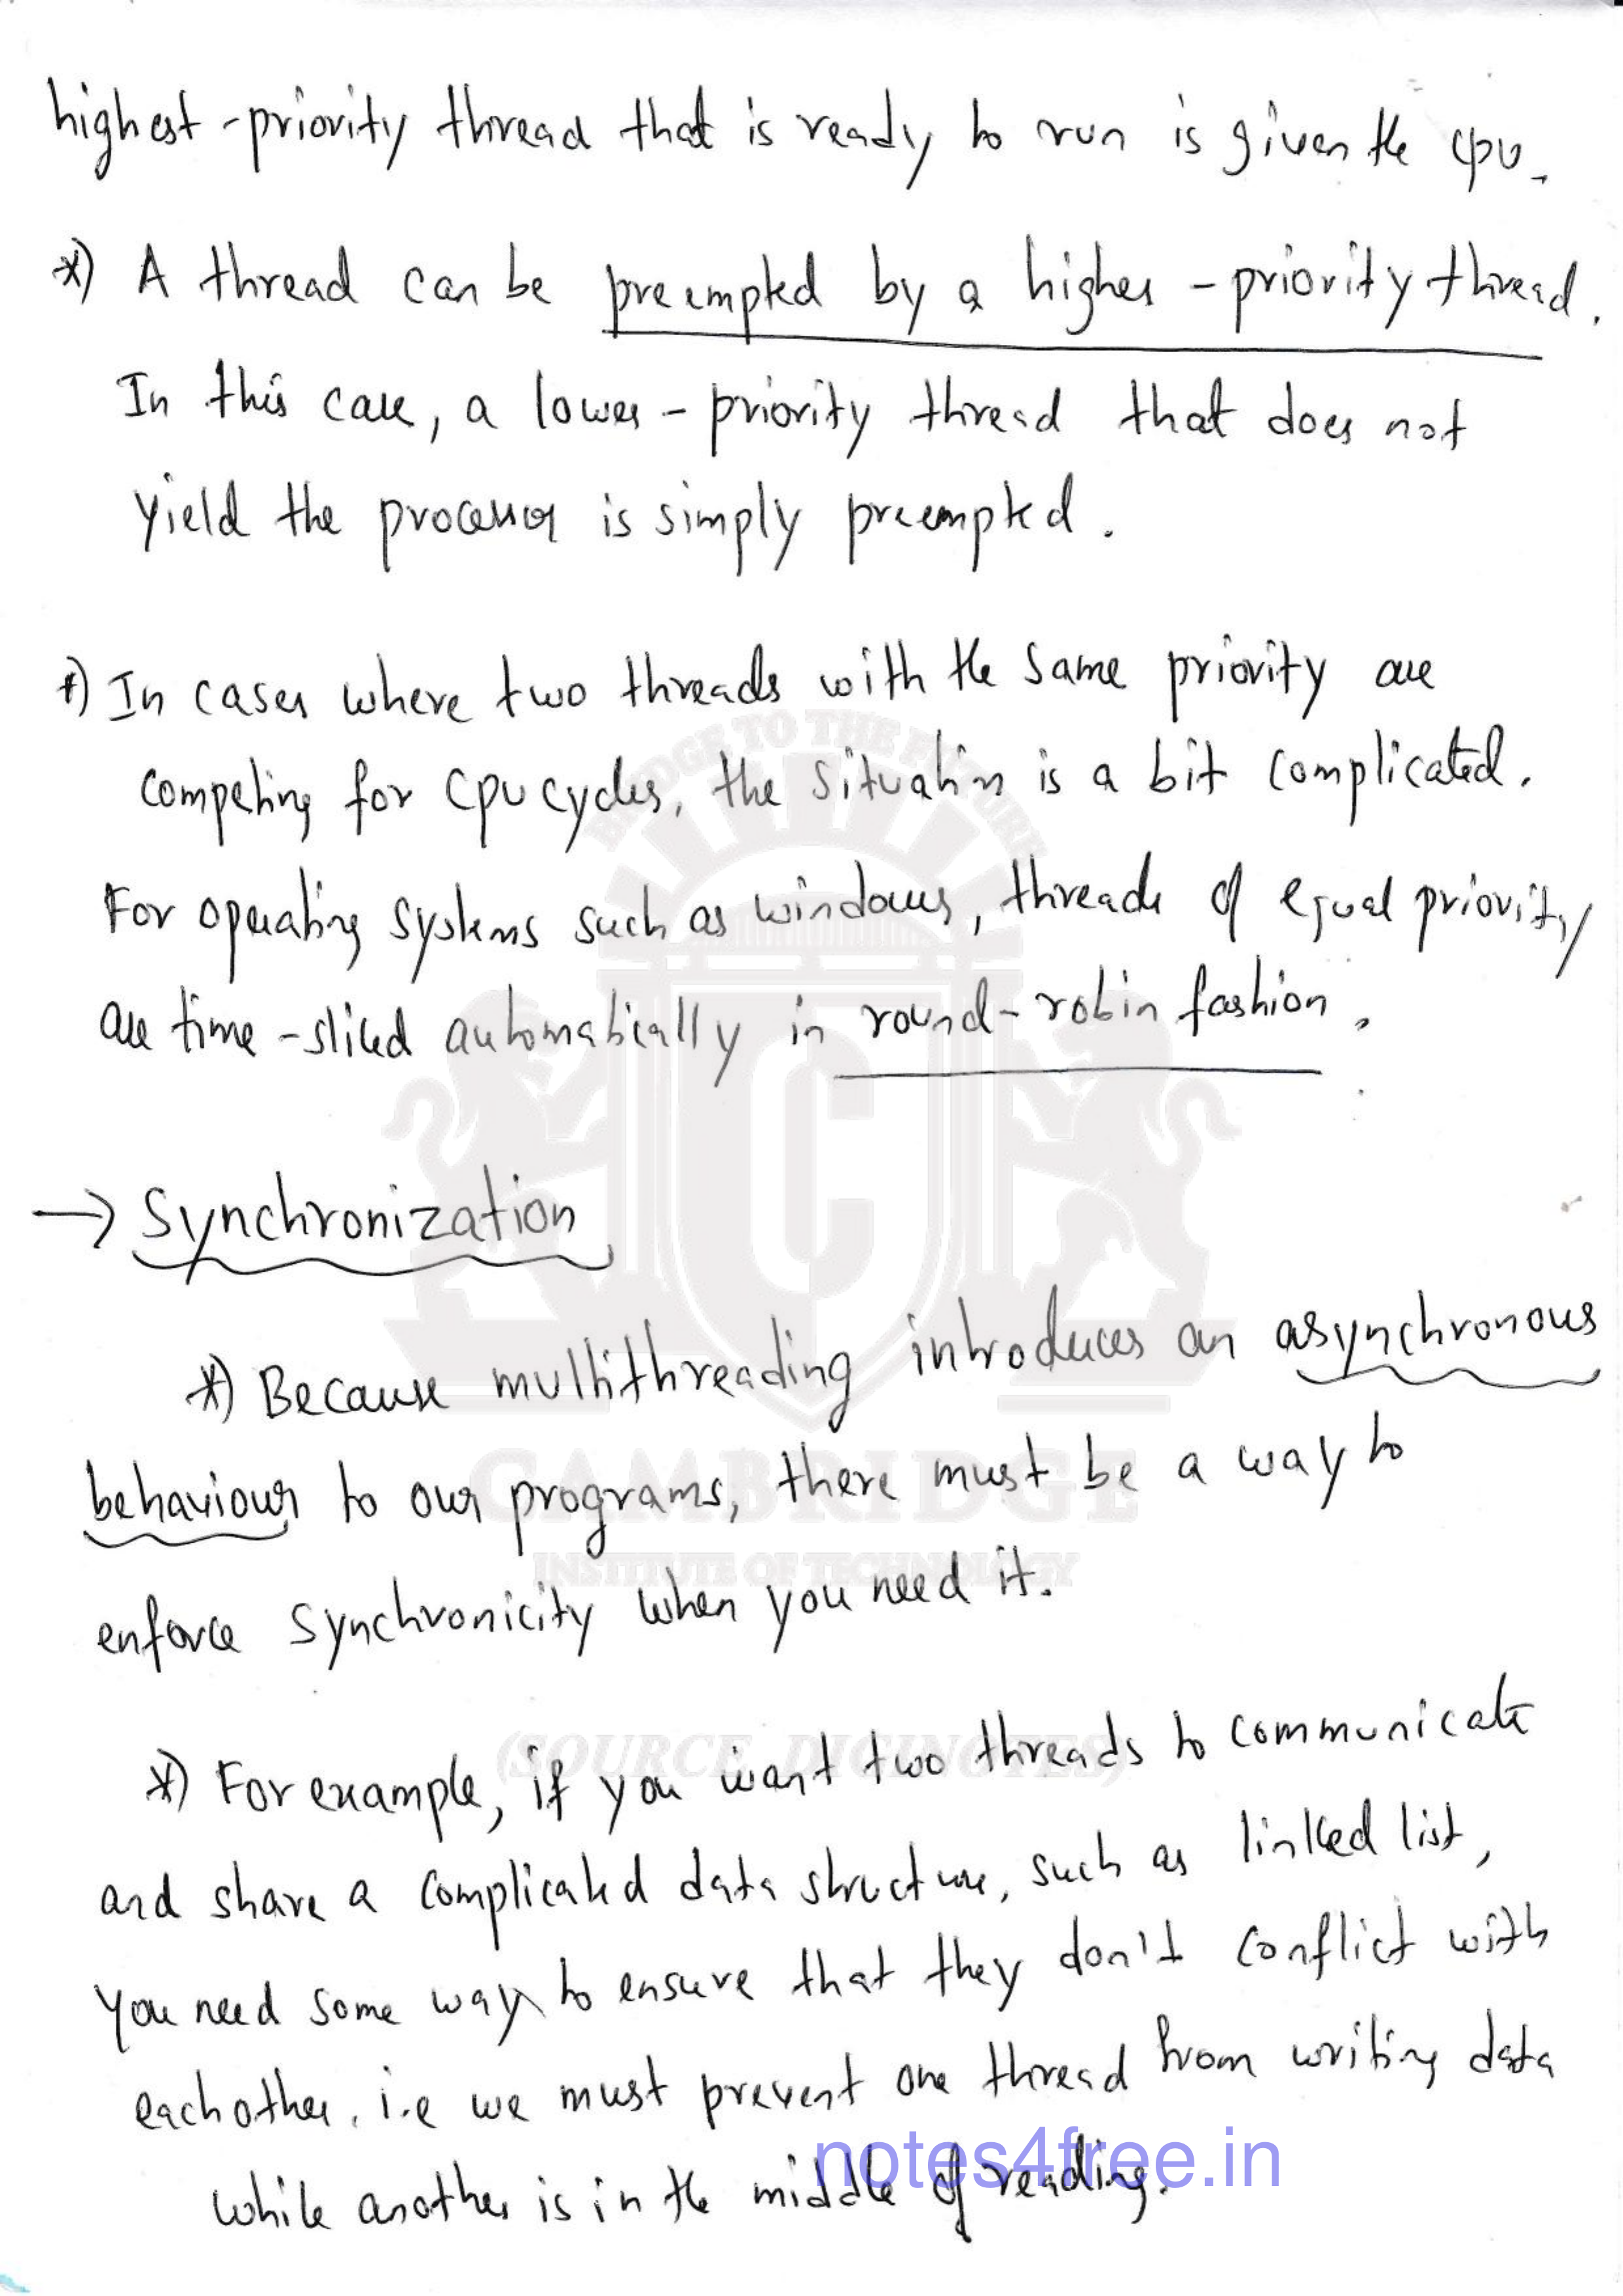 highest-priority thread that is ready to run is given the cpu.
*) A thread can be preempted by a higher-priority thread.
In this case, a lower-priority thread that does not
yield the processor is simply preempted.
*) In cases where two threads with the same priority are
competing for cpu cycles, the situation is a bit complicated.
For operating systems such as windows, threads of equal priority
are time-sliced automatically in round-robin fashion.
→ Synchronization
*) Because multithreading introduces an asynchronous
behaviour to our programs, there must be a way to
enforce synchronicity when you need it.
*) For example, if you want two threads to communicate
and share a complicated data structure, such as linked list,
you need some way to ensure that they don't conflict with
eachother. i.e we must prevent one thread from writing data
while another is in the middle of reading.
BRIDGE TO THE FUTURE
C
CAMBRIDGE
INSTITUTE OF TECHNOLOGY
(SOURCE DIGINOTES)
notes4free.in